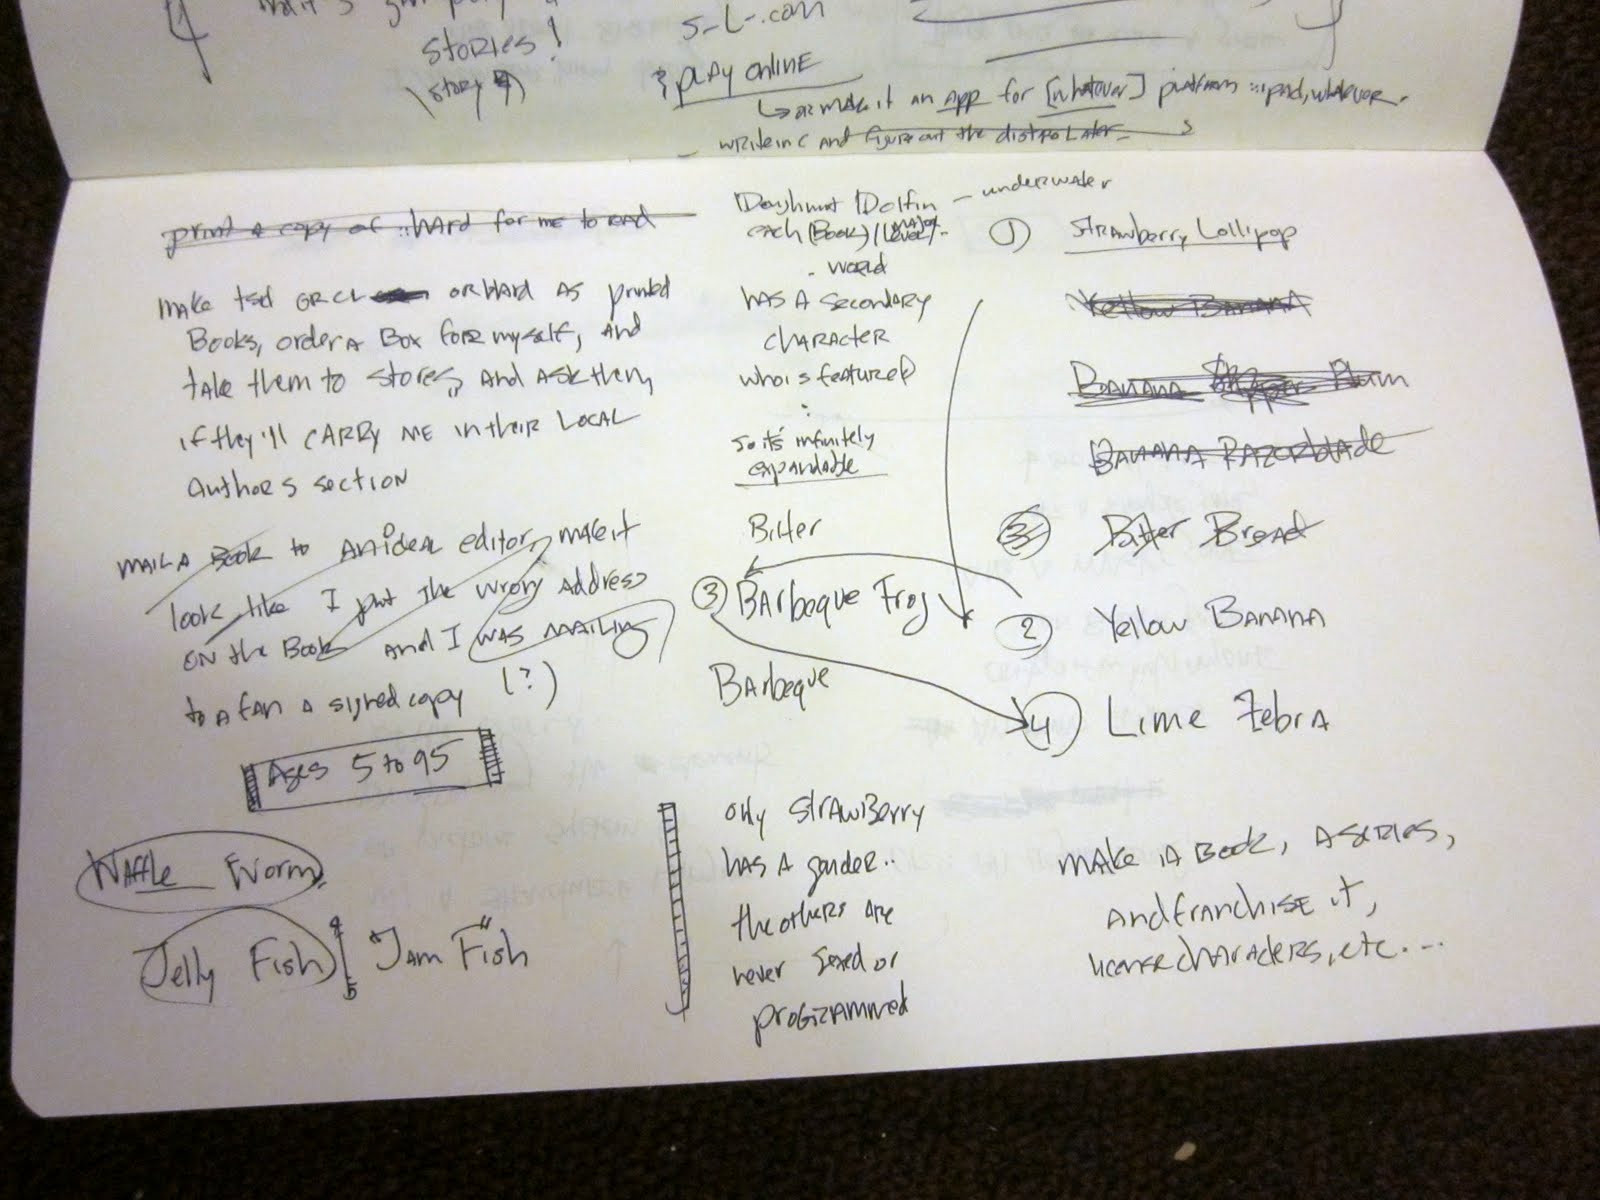 STORIES!
(story
S-L-.com
& play online
or make it an app for [whatever] platform ... ipad, whatever.
write in c and figure out the distro later
print a copy of ... hard for me to read
make tsd or cl or blard as printed
Books, order a Box for myself, and
take them to stores, and ask them
if they'll carry me in their local
authors section
mail a Book to an ideal editor, make it
look like I put the wrong address
on the Book and I was mailing
to a fan a signed copy (?)
Ages 5 to 95
Waffle Worm
Jelly Fish
"Jam Fish"
Doughnut Dolfin - underwater
each (Book) / major level / -
world
has a secondary
character
who is featured
so its infinitely
expandable
Bitter
3 Barbeque Frog
Barbeque
only Strawberry
has a gender..
the others are
never sexed or
programmed
1 Strawberry Lollipop
Yellow Banana
Banana Plum
Banana Razorblade
3 Bitter Bread
2 Yellow Banana
4 Lime Zebra
make a Book, a series,
and franchise it,
license characters, etc....